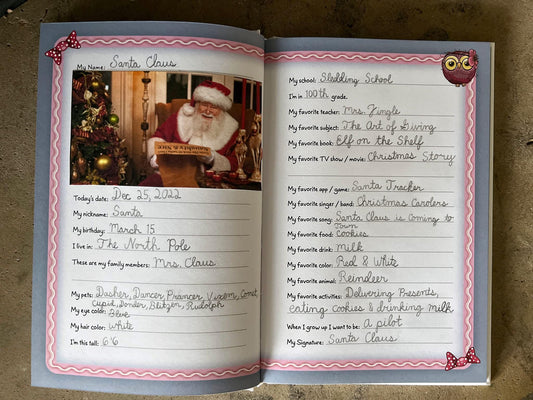 My Name: Santa Claus
Naughty & Nice
Today's date: Dec 25, 2022
My nickname: Santa
My birthday: March 15
I live in: The North Pole
These are my family members: Mrs. Claus
My pets: Dasher, Dancer, Prancer, Vixen, Comet,
Cupid, Donder, Blitzen, Rudolph
My eye color: Blue
My hair color: white
I'm this tall: 6'6
My school: Sledding School
I'm in 100th grade.
My favorite teacher: Mrs. Jingle
My favorite subject: The Art of Giving
My favorite book: Elf on the Shelf
My favorite TV show / movie: Christmas Story
My favorite app / game: Santa Tracker
My favorite singer / band: Christmas Carolers
My favorite song: Santa Claus is coming to
Town
My favorite food: Cookies
My favorite drink: Milk
My favorite color: Red & White
My favorite animal: Reindeer
My favorite activities: Delivering Presents,
eating Cookies & drinking milk
When I grow up I want to be: A pilot
My Signature: Santa Claus